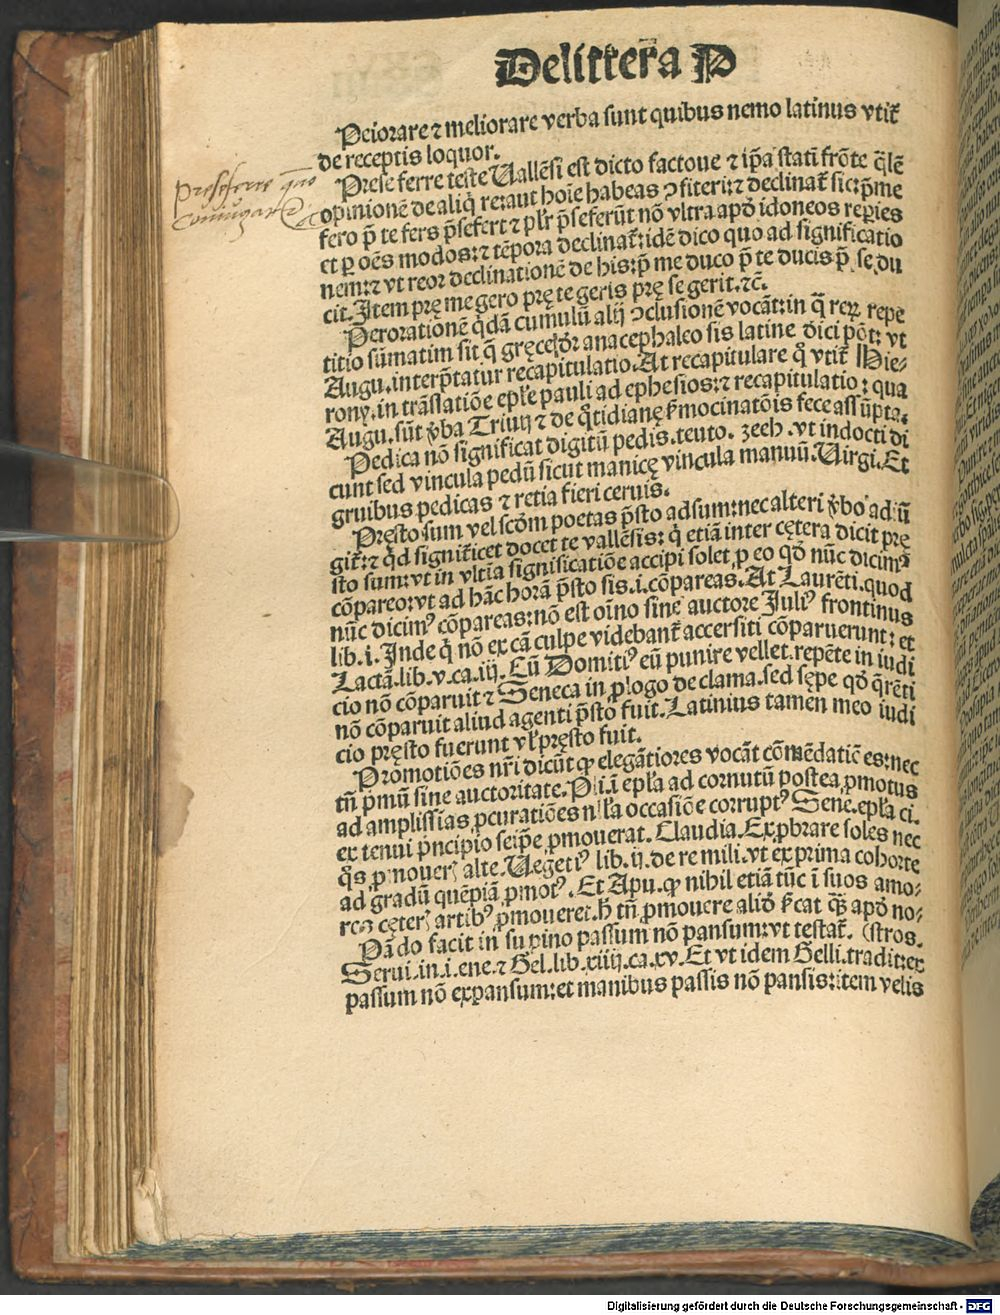 De littera P
Peiorare ⁊ meliorare verba sunt quibus nemo latinus vtit̃
de receptis loquor.
Prese ferre teste Uallēsi est dicto factoue ⁊ ip̄a statī frōte q̄lē
opinionē de aliq̄ re: aut hoīe habeas ꝯfiteri: ⁊ declinat̃ sic: p̄me
fero p̄ te fers p̄sefert ⁊ pl̄r p̄seferūt nō vltra apd̄ idoneos rep̄ies
et ꝑ oēs modos: ⁊ tēpora declinat̃: idē dico quo ad significatio
nem: ⁊ vt reor declinationē de his: p̄ me duco p̄ te ducis p̄ se du
cit. Item prę me gero prę te geris prę se gerit. ⁊c̄.
Perorationē q̄dā cumulū alij ꝯclusionē vocāt: in q̄ reꝝ repe
titio sūmatim sit q̄ gręce anacephaleo sis latine dici pōt: vt
Augu. interp̄tatur recapitulatio. At recapitulare q̄ vtit̃ Hie-
rony. in trāslatiōe epl̄e pauli ad ephesios: ⁊ recapitulatio: qua
Augu. sūt v̄ba Triuij ⁊ de q̄tidianę s̄mocinatōis fece assūpta.
Pedica nō significat digitū pedis. teuto. zech. vt indocti di
cunt sed vincula pedū sicut manicę vincula manuū. Uirgi. Et
gruibus pedicas ⁊ retia fieri ceruis.
Pręsto sum vel scd̄m poetas p̄sto adsum: nec alteri v̄bo adiū
git̃: ⁊ qd̄ significet docet te vallēsis: q̄ etiā inter cętera dicit prę
sto sum: vt in vltīa significatiōe accipi solet, ꝑ eo qd̄ nūc dicimꝰ
cōpareo: vt ad hāc horā p̄sto sis .i. cōpareas. At Laurēti. quod
nūc dicimꝰ cōpareas: nō est oīno sine auctore Juliꝰ frontinus
lib. i. Inde q̄ nō ex cā culpe videbant̃ accersiti cōparuerunt: et
Lactā. lib. v. ca. iij. Cū Domitiꝰ eū punire vellet. repēte in iudi
cio nō cōparuit ⁊ Seneca in ꝓlogo de clama. sed sępe qd̄ q̄rēti
nō cōparuit aliud agenti p̄sto fuit. Latinius tamen meo iudi
cio pręsto fuerunt vl̄ pręsto fuit.
Promotiōes nr̄i dicūt qꝫ elegātiores vocāt cōmēdatiōes: nec
tn̄ p̄mū sine auctoritate. Pli. ī epl̄a ad cornutū postea ꝓmotus
ad amplissīas ꝓcuratiōes nl̄la occasiōe corruptꝰ Sene. epl̄a ci.
ex tenui p̄ncipio seip̄e ꝓmouerat. Claudia. Exꝓbrare soles nec
q̄s ꝓmouer̄ alte. Uegetiꝰ lib. ij. de re mili. vt ex prima cohorte
ad gradū quēpiā ꝓmotꝰ. Et Apu. qꝫ nihil etiā tūc ī suos amo-
res cęter̄ artibꝰ ꝓmoueret. h̄ tn̄ ꝓmouere alid̄ apd̄ no-
Pādo facit in supino passum nō pansum: vt testat̃. (stros.
Serui. in .i. ene. ⁊ Gel. lib. xiiij. ca. xv. Et vt idem Gelli. tradit: ex
passum nō expansum: et manibus passis nō pansis: item velis
Preseferre quō
coniugar
Digitalisierung gefördert durch die Deutsche Forschungsgemeinschaft - DFG